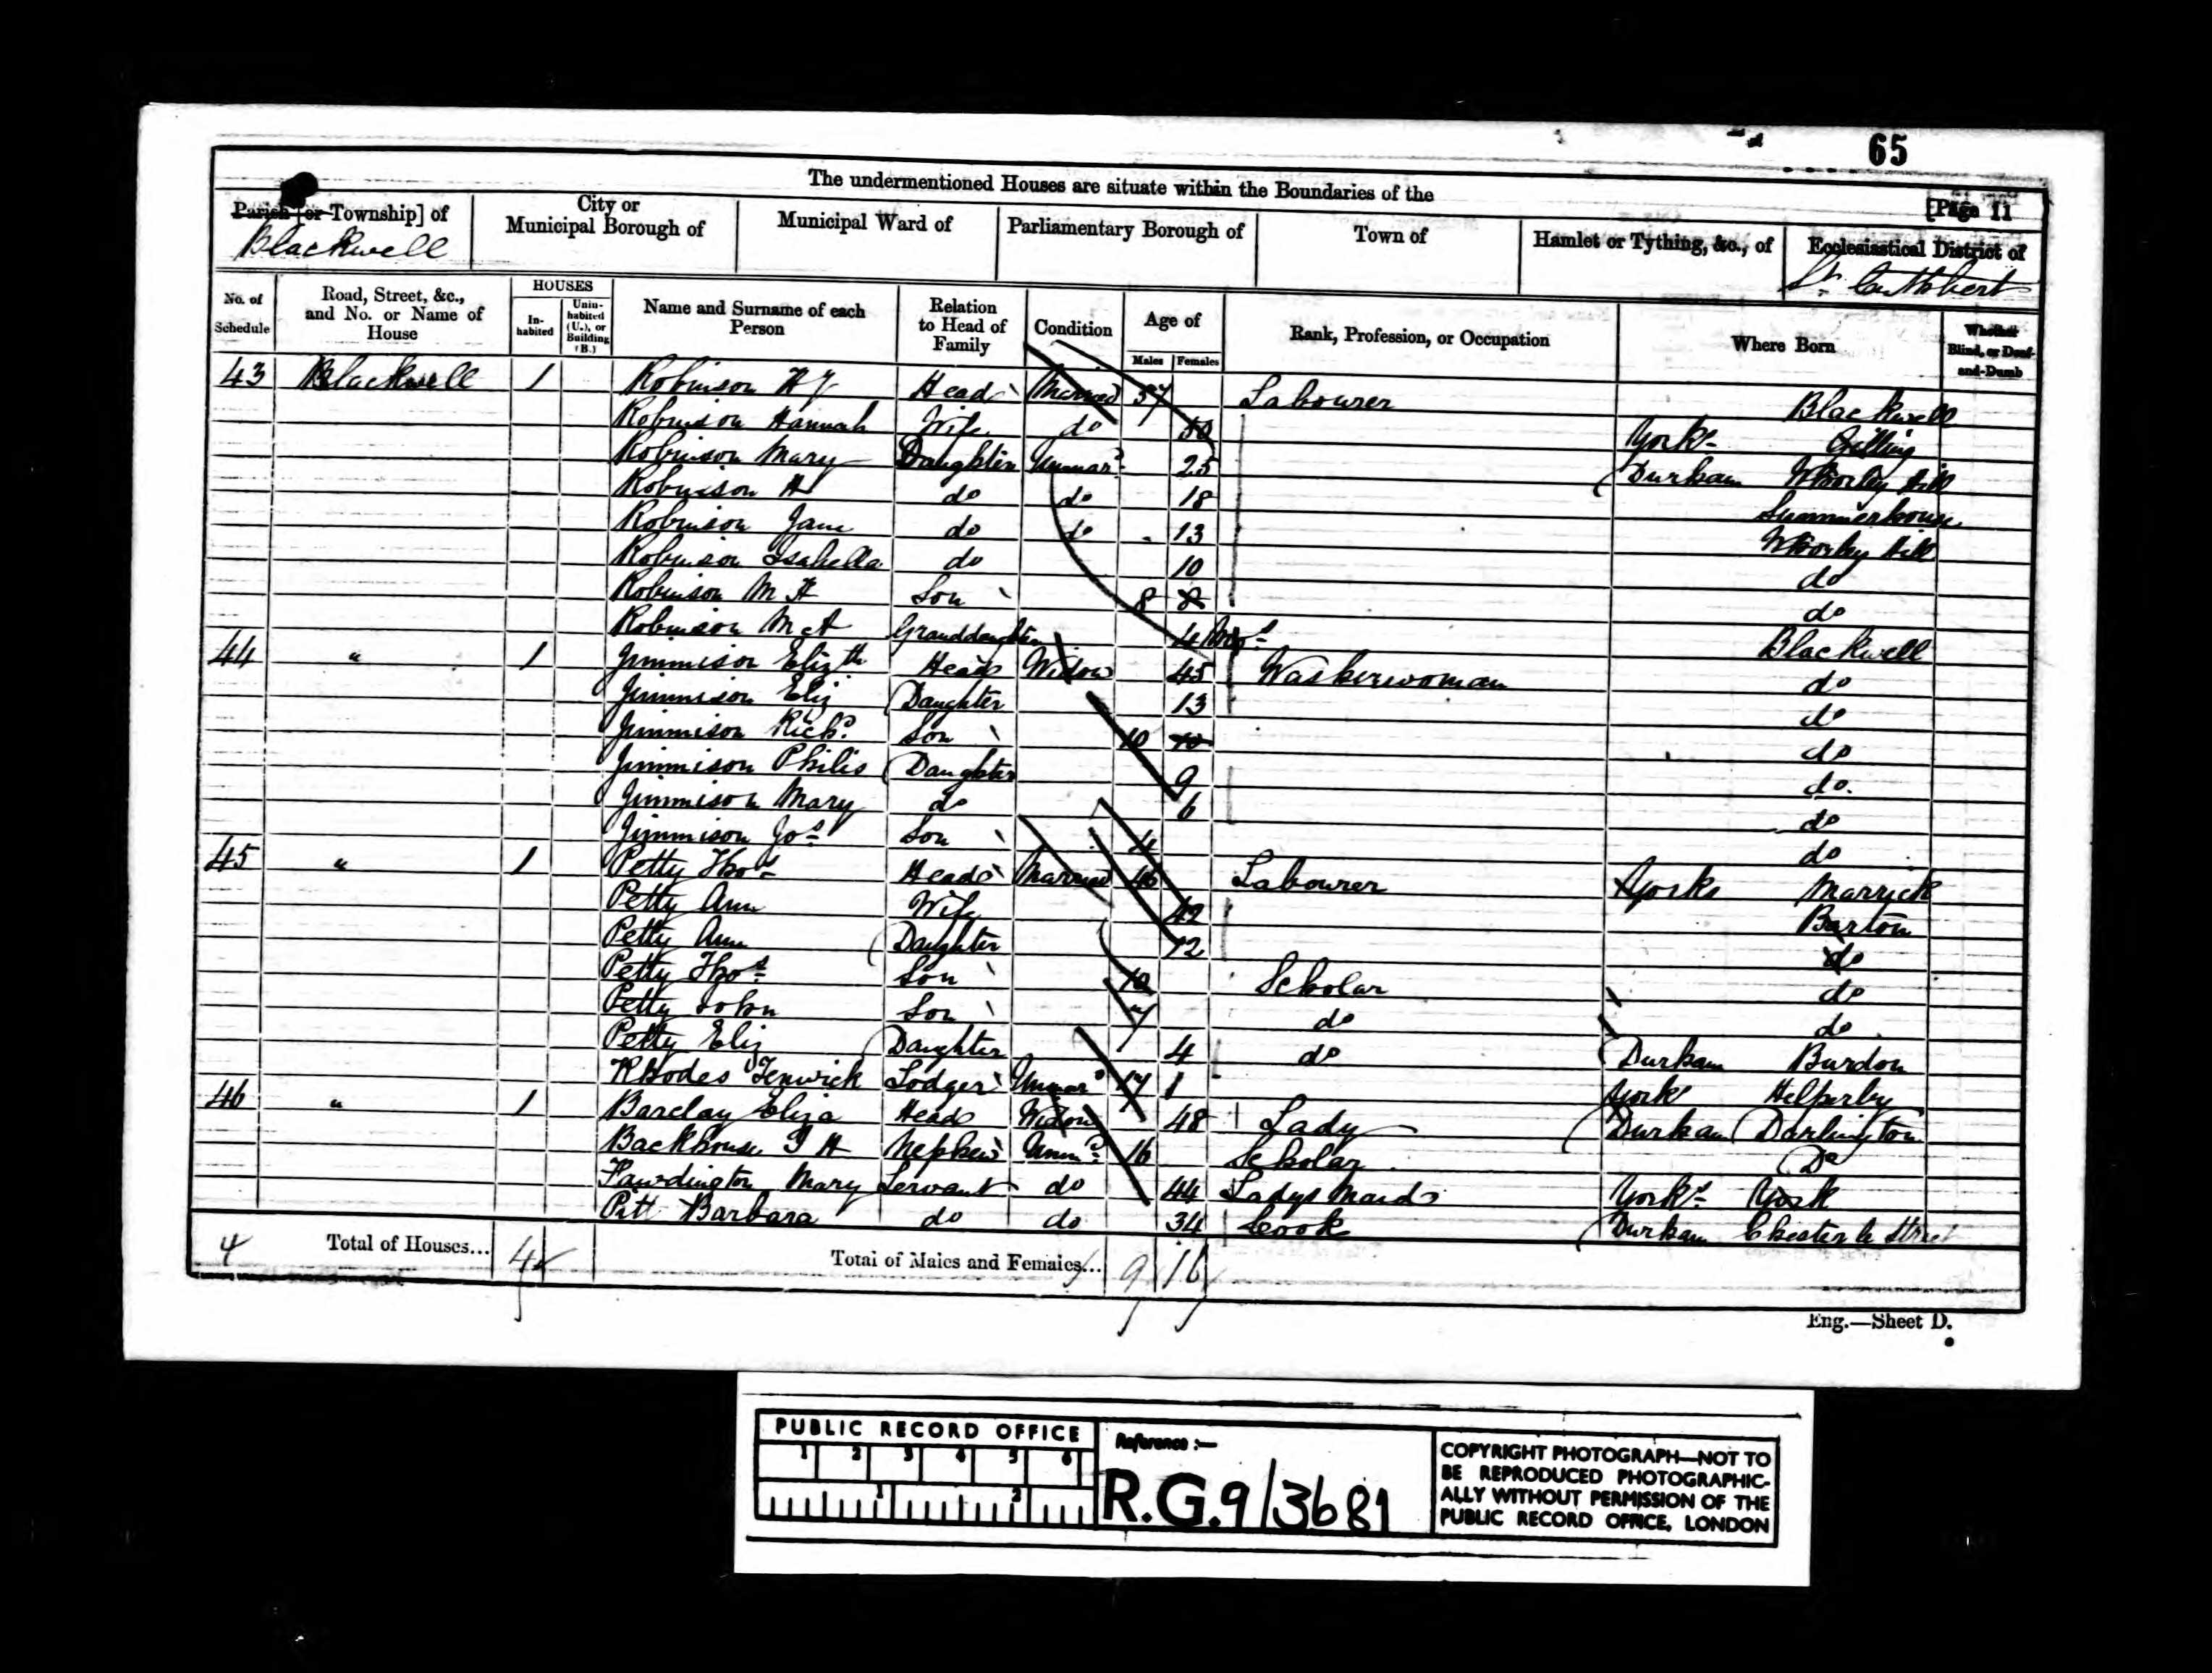 65
The undermentioned Houses are situate within the Boundaries of the
[Page 11
Parish [or Township] of
Blackwell
City or
Municipal Borough of
Municipal Ward of
Parliamentary Borough of
Town of
Hamlet or Tything, &c., of
Ecclesiastical District of
St. Cuthbert
No. of
Schedule
Road, Street, &c.,
and No. or Name of
House
HOUSES
In-
habited
Unin-
habited
(U.), or
Building
(B.)
Name and Surname of each
Person
Relation
to Head of
Family
Condition
Age of
Males Females
Rank, Profession, or Occupation
Where Born
Whether
Blind, or Deaf-
and-Dumb
43 Blackwell 1 Robinson Head Married 37 Labourer Blackwell
Robinson Hannah Wife do 50 Yorks Gilling
Robinson Mary Daughter Unmard 25 Durham Hill
Robinson H do do 18 Summerhouse
Robinson Jane do do 13 Hill
Robinson Isabella do 10 do
Robinson M H Son 8 8 do
Robinson M A Granddaughter 4 Mos Blackwell
44 " 1 Jimmison Elizth Head Widow 45 Washerwoman do
Jimmison Eliz Daughter 13 do
Jimmison Richd Son 10 10 do
Jimmison Philis Daughter 9 do.
Jimmison Mary do 6 do
Jimmison Jos Son 4 do
45 " 1 Petty Thos Head Married 46 Labourer Yorks Marrick
Petty Ann Wife 42 Barton
Petty Ann Daughter 12 do
Petty Thos Son 10 Scholar do
Petty John Son 7 do do
Petty Eliz Daughter 4 do Durham Burdon
Rhodes Fenwick Lodger Unmard 17 York Helperby
46 " 1 Barclay Eliza Head Widow 48 Lady Durham Darlington
Backhouse J H Nephew Unmd 16 Scholar Do
Fawdington Mary Servant do 44 Ladys Maid Yorks York
Pitt Barbara do do 34 Cook Durham Chester le Street
4 Total of Houses... 4 Total of Males and Females... 9 16
Eng.—Sheet D.
PUBLIC RECORD OFFICE
1 2 3 4 5 6
1 2
Reference :—
R.G.9/3681
COPYRIGHT PHOTOGRAPH—NOT TO
BE REPRODUCED PHOTOGRAPHIC-
ALLY WITHOUT PERMISSION OF THE
PUBLIC RECORD OFFICE, LONDON